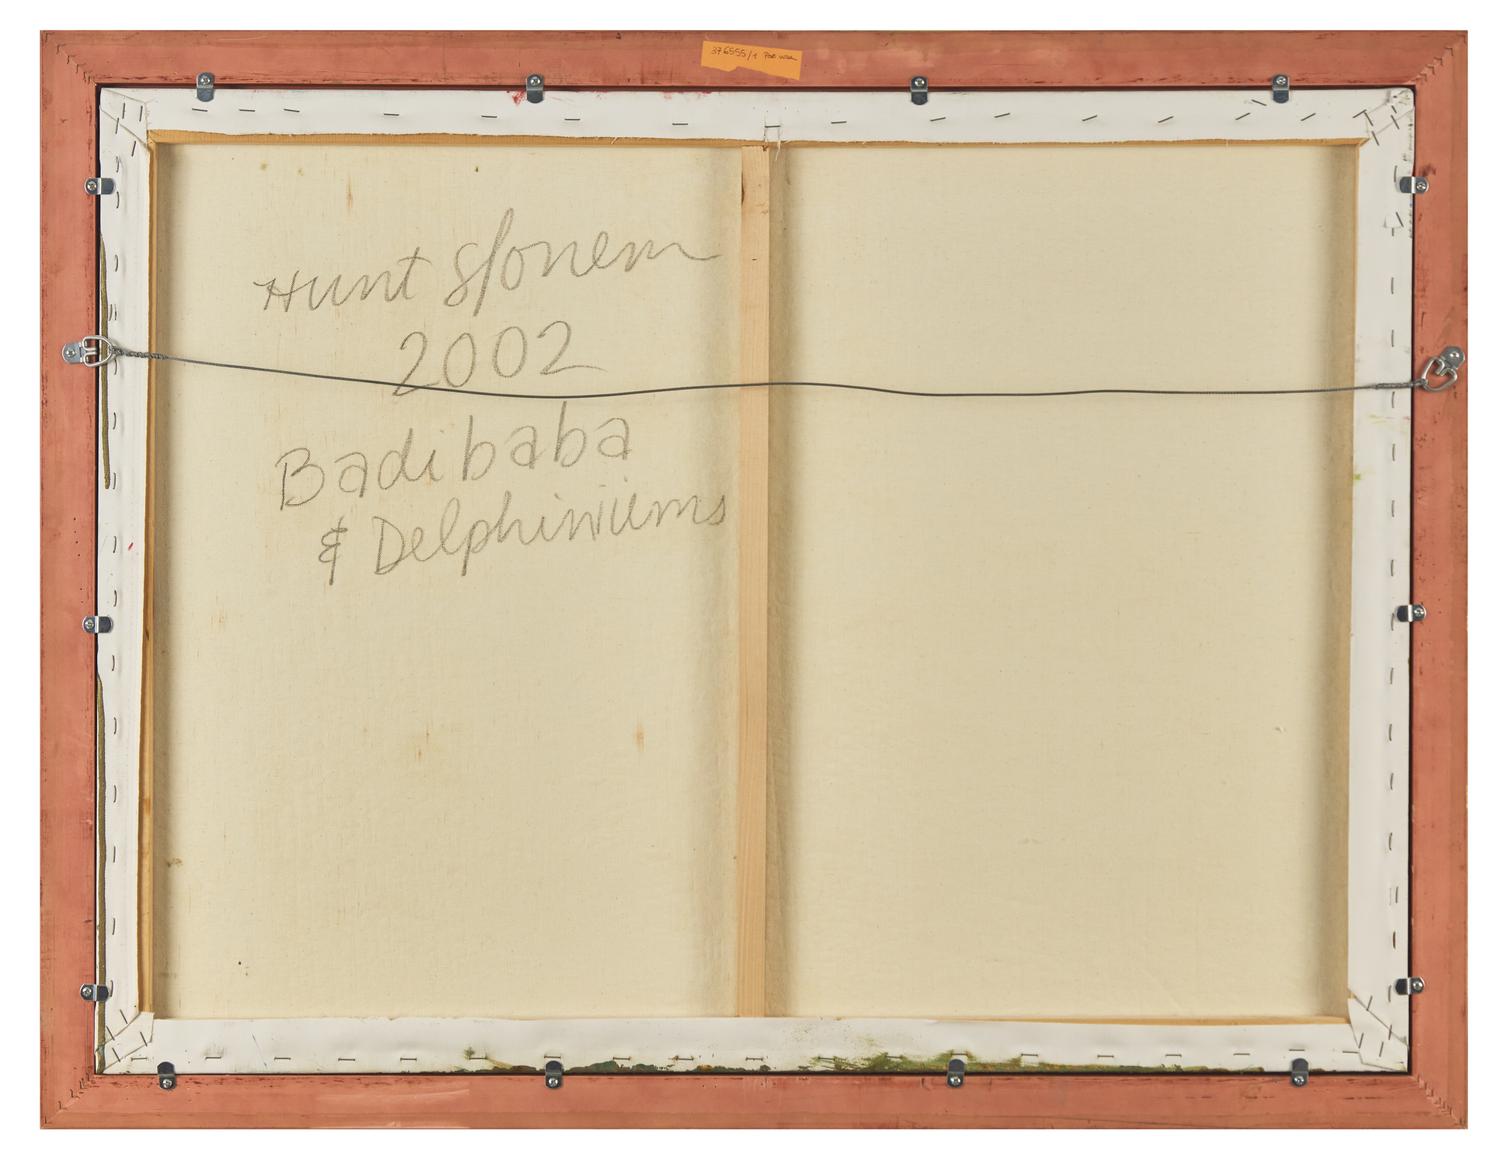 376555/1
Hunt Slonem
2002
Badibaba
& Delphiniums